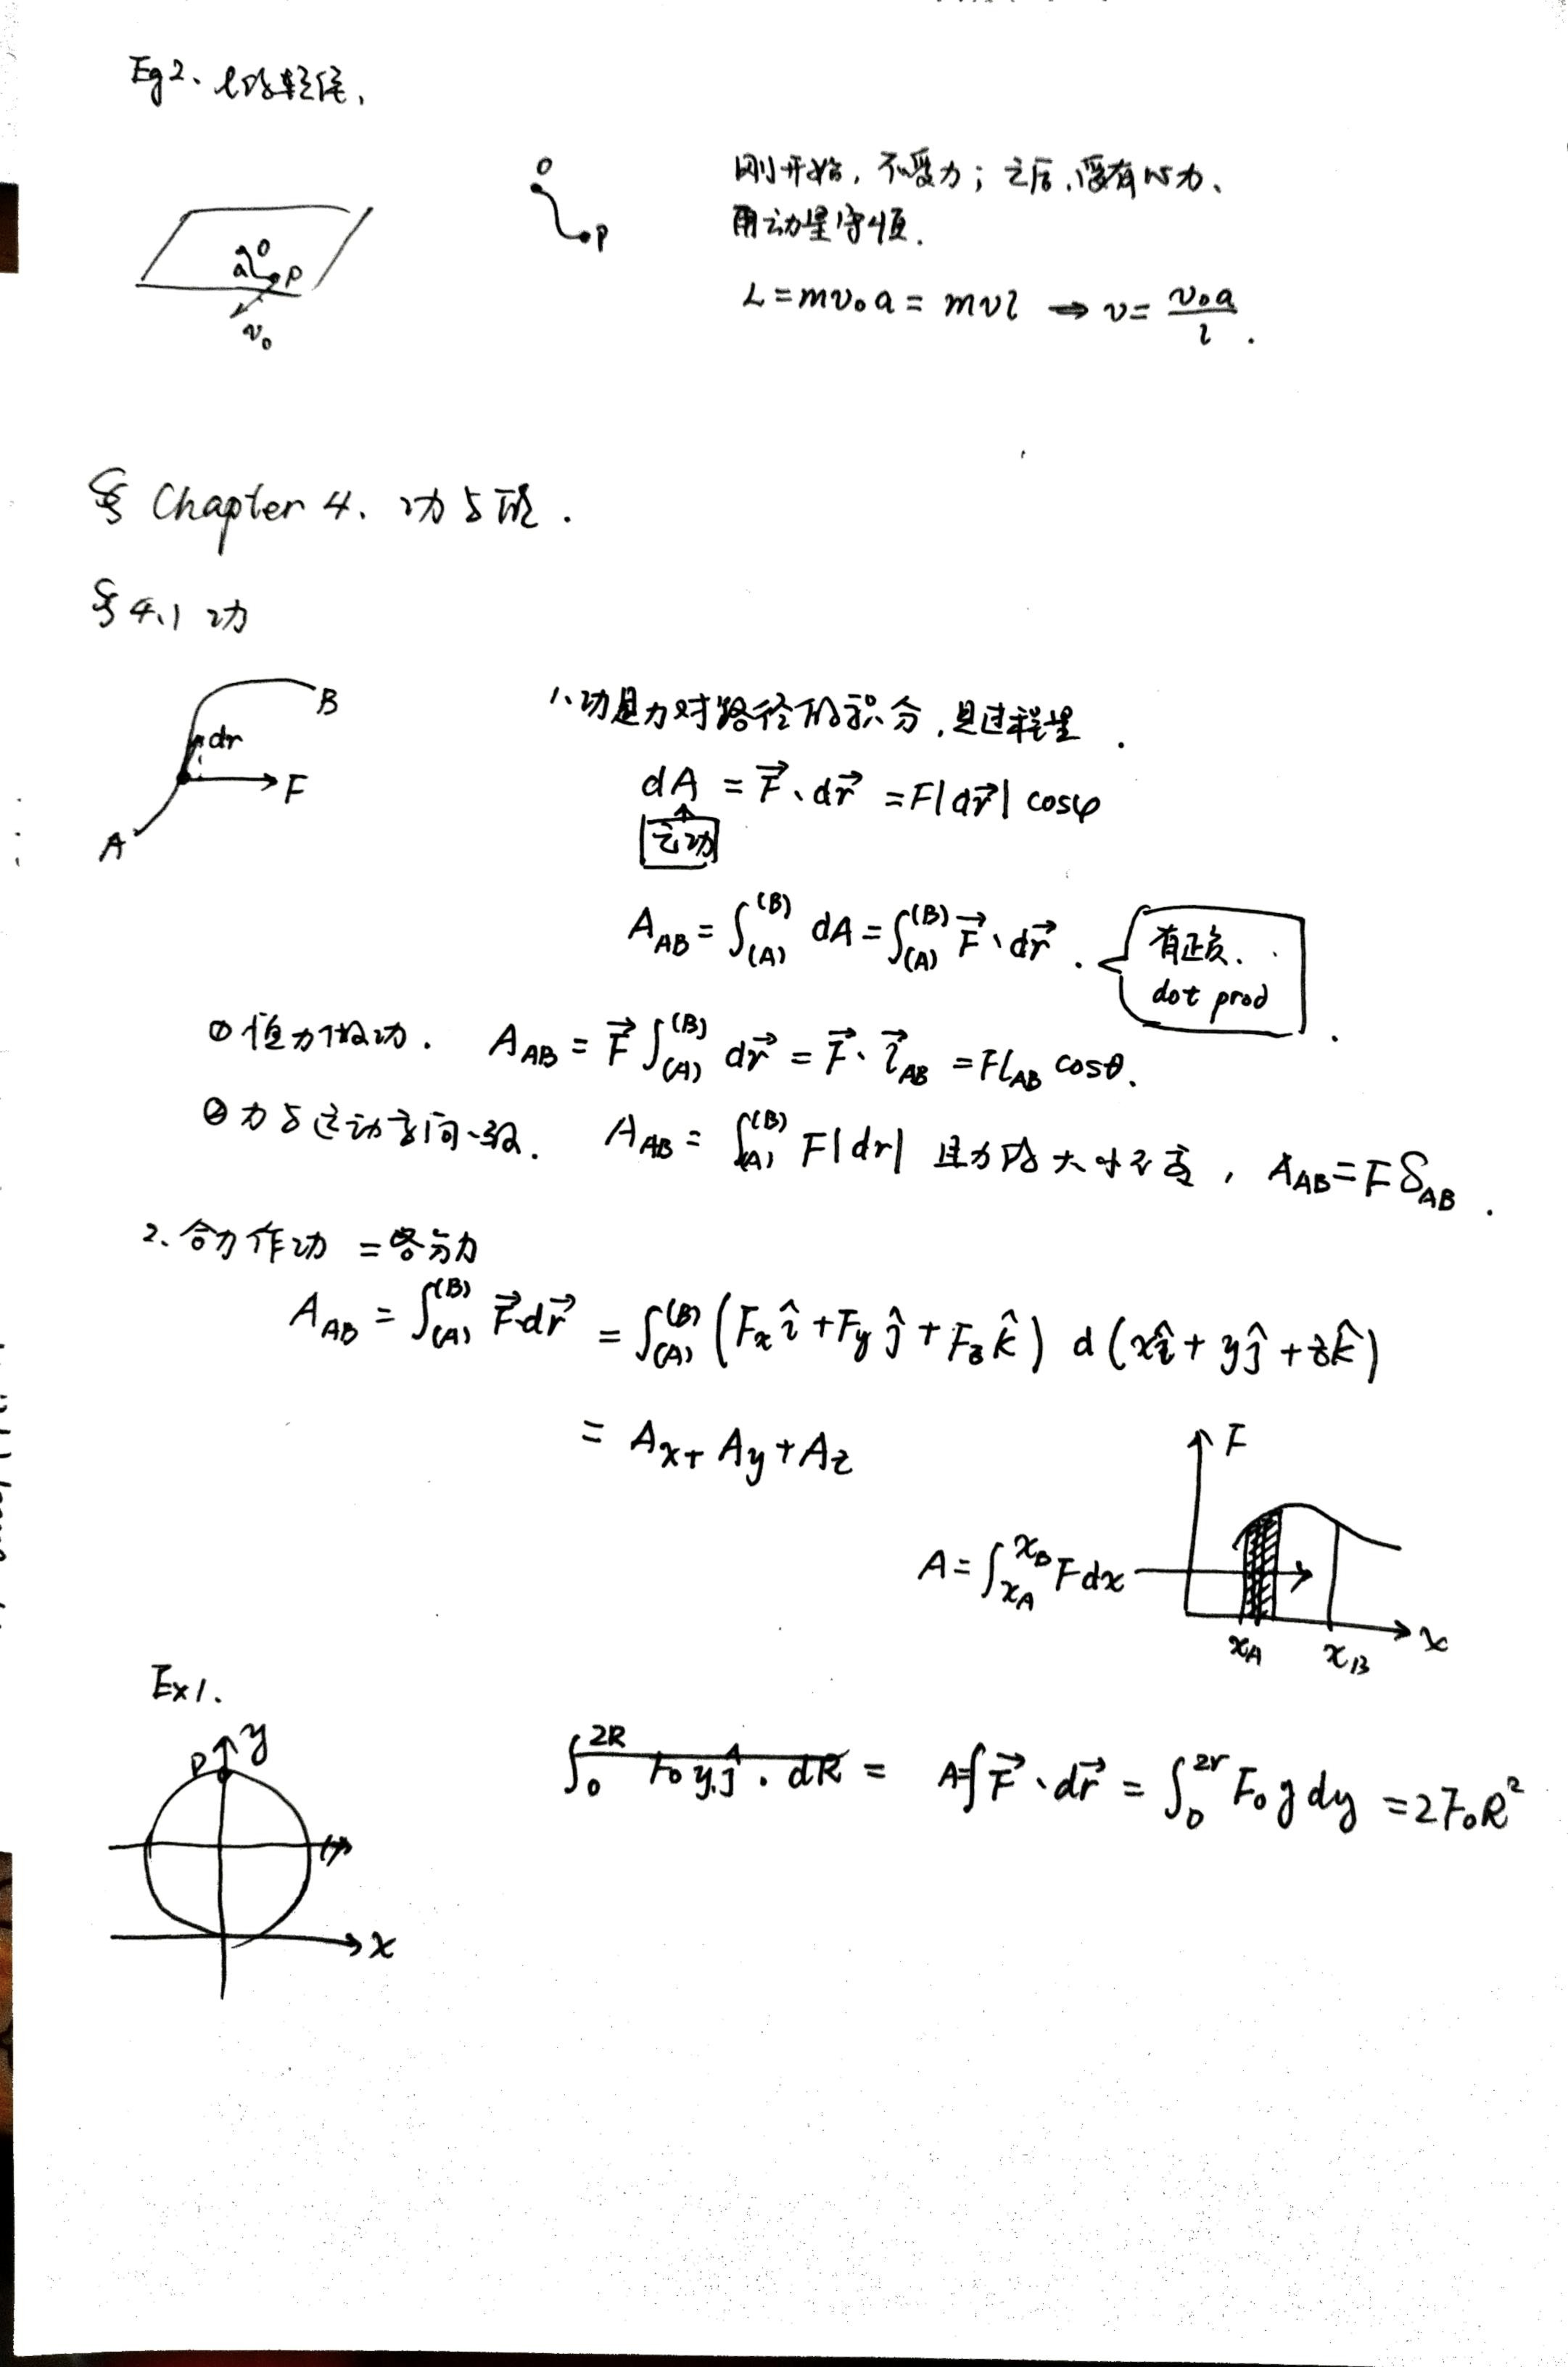 Eg2、l的轻绳、
O
P
刚开始，不受力；之后，受有心力、
用动量守恒．
L = mv₀a = mvl → v = v₀a / l .
O
a
P
v₀
§ Chapter 4. 功与能 .
§4.1 功
A
B
dr
F
1、功是力对路径的积分，是过程量．
dA = F⃗·dr⃗ = F|dr⃗| cosφ
元功
A_AB = ∫_(A)^(B) dA = ∫_(A)^(B) F⃗·dr⃗ .
有正负．
dot prod
① 恒力做功． A_AB = F⃗ ∫_(A)^(B) dr⃗ = F⃗·l⃗_AB = Fl_AB cosθ.
② 力与运动方向一致． A_AB = ∫_(A)^(B) F|dr| 且力的大小不变，A_AB = F S_AB .
2、合力作功 = 各分力
A_AB = ∫_(A)^(B) F⃗·dr⃗ = ∫_(A)^(B) (F_x î + F_y ĵ + F_z k̂) d(xî + yĵ + zk̂)
= A_x + A_y + A_z
F
A = ∫_{x_A}^{x_B} F dx
x_A
x_B
x
Ex1.
P
y
x
∫_0^{2R} F₀yĵ · dR = A=∫F⃗·dr⃗ = ∫_0^{2r} F₀ y dy = 2F₀R²